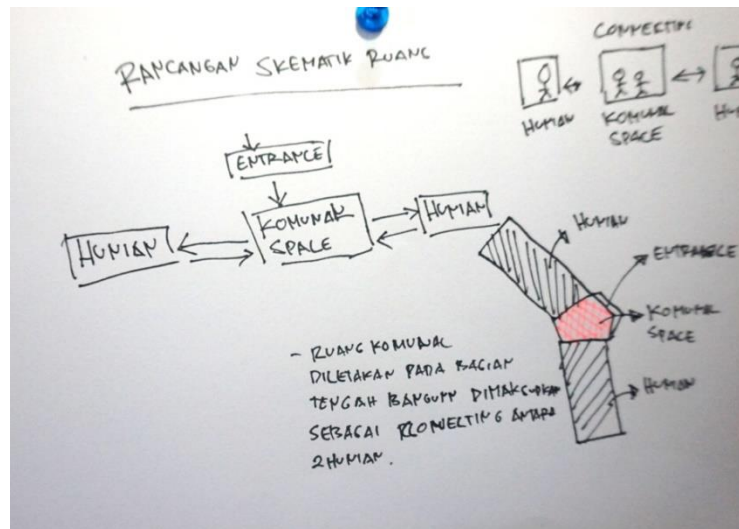 RANCANGAN SKEMATIK RUANG
CONNECTING
HUNIAN
KOMUNAL
SPACE
ENTRANCE
HUNIAN
KOMUNAL
SPACE
HUNIAN
HUNIAN
ENTRANCE
KOMUNAL
SPACE
HUNIAN
- RUANG KOMUNAL
DILETAKAN PADA BAGIAN
TENGAH BANGUNN DIMAKSUDKAN
SEBAGAI CONNECTING ANTARA
2 HUNIAN.